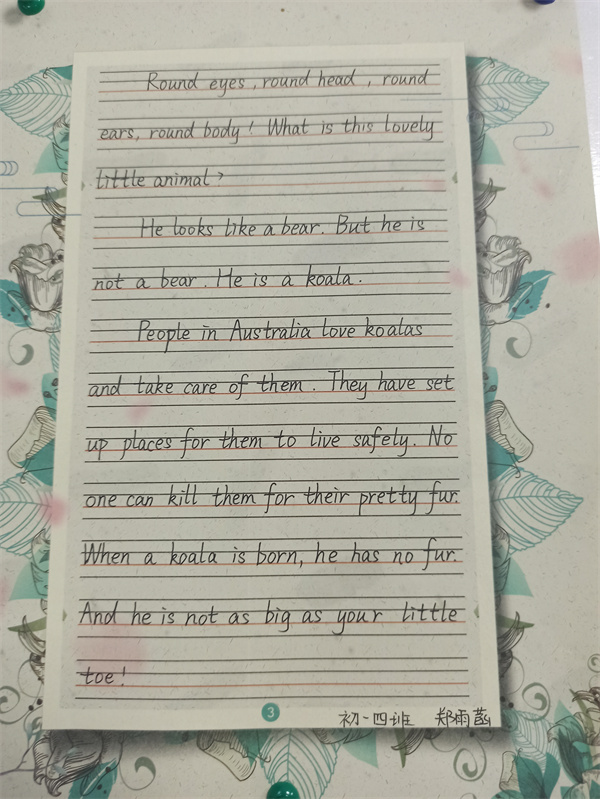 Round eyes, round head, round
ears, round body! What is this lovely
little animal?
He looks like a bear. But he is
not a bear. He is a koala.
People in Australia love koalas
and take care of them. They have set
up places for them to live safely. No
one can kill them for their pretty fur.
When a koala is born, he has no fur.
And he is not as big as your little
toe!
3
初一四班 郑雨菡